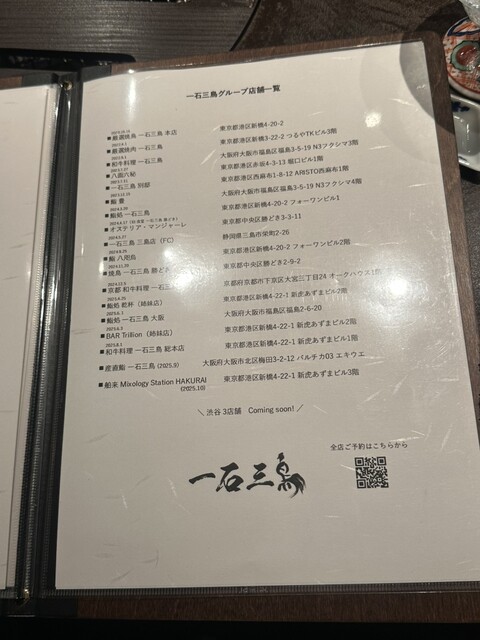 一石三鳥グループ店舗一覧
■厳選焼鳥 一石三鳥 本店 東京都港区新橋4-20-2
■厳選焼肉 一石三鳥 東京都港区新橋3-22-2 つるやTKビル3階
■和牛料理 一石三鳥 大阪府大阪市福島区福島3-5-19 N3フクシマ3階
■八面六秘 東京都港区赤坂4-3-13 堀口ビル1階
■一石三鳥 別邸 東京都港区西麻布1-8-12 ARISTO西麻布1階
■鮨 大阪府大阪市福島区福島3-5-19 N3フクシマ4階
■鮨処 一石三鳥 東京都港区新橋4-20-2 フォーワンビル1
■オステリア・マンジャーレ 東京都中央区勝どき3-3-11
■一石三鳥 三島店（FC） 静岡県三島市栄町2-26
■鮨 八咫烏 東京都港区新橋4-20-2 フォーワンビル2階
■焼鳥 一石三鳥 勝どき 東京都中央区勝どき2-9-2
■京都 和牛料理 一石三 京都府京都市下京区大宮三丁目24 オークハウス1階
■鮨処 乾杯（姉妹店） 東京都港区新橋4-22-1 新虎あずまビル2階
■鮨処 一石三鳥 大阪 大阪府大阪市福島区福島2-6-20
■BAR Trillion（姉妹店） 東京都港区新橋4-22-1 新虎あずまビル2階
■和牛料理 一石三鳥 総本店 東京都港区新橋4-22-1 新虎あずまビル1階
■産直鮨 一石三鳥 (2025.9) 大阪府大阪市北区梅田3-2-12 バルチカ03 エキウエ
■舶来 Mixology Station HAKURAI 東京都港区新橋4-22-1 新虎あずまビル3階
(2025.10)
＼ 渋谷 3店舗 Coming soon! ／
全店ご予約はこちらから
一石三鳥